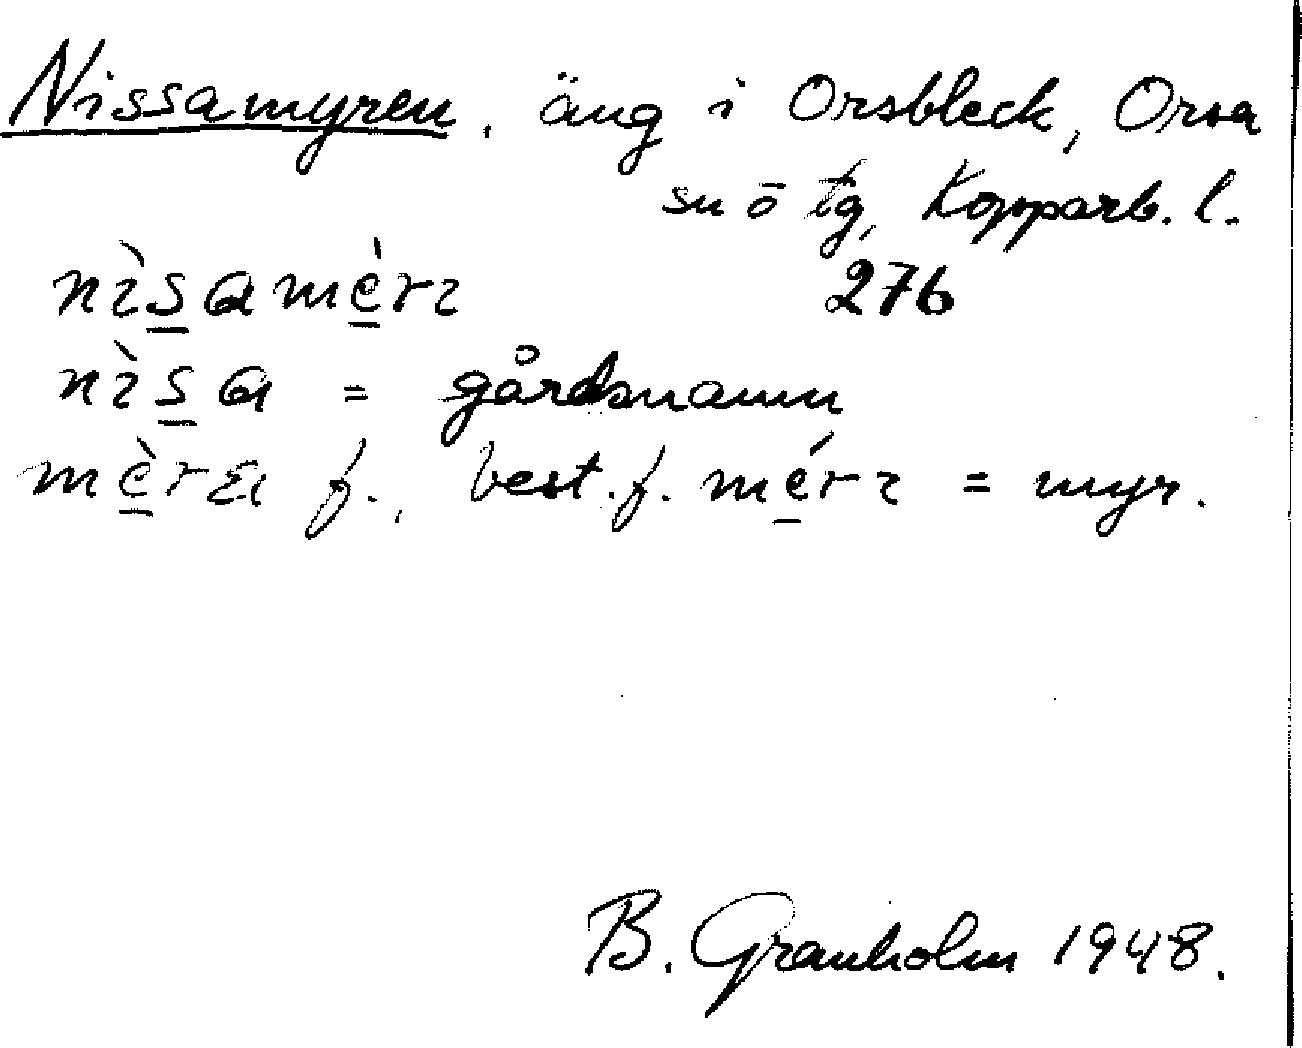 Nissamyren, äng i Orsbleck, Orsa
sn ō tg, Kopparb. l.
nìsɑmérɪ 276
nìsɑ = gårdsnamn
mèrɛ f., best. f. mérɪ = myr.
B. Granholm 1948.